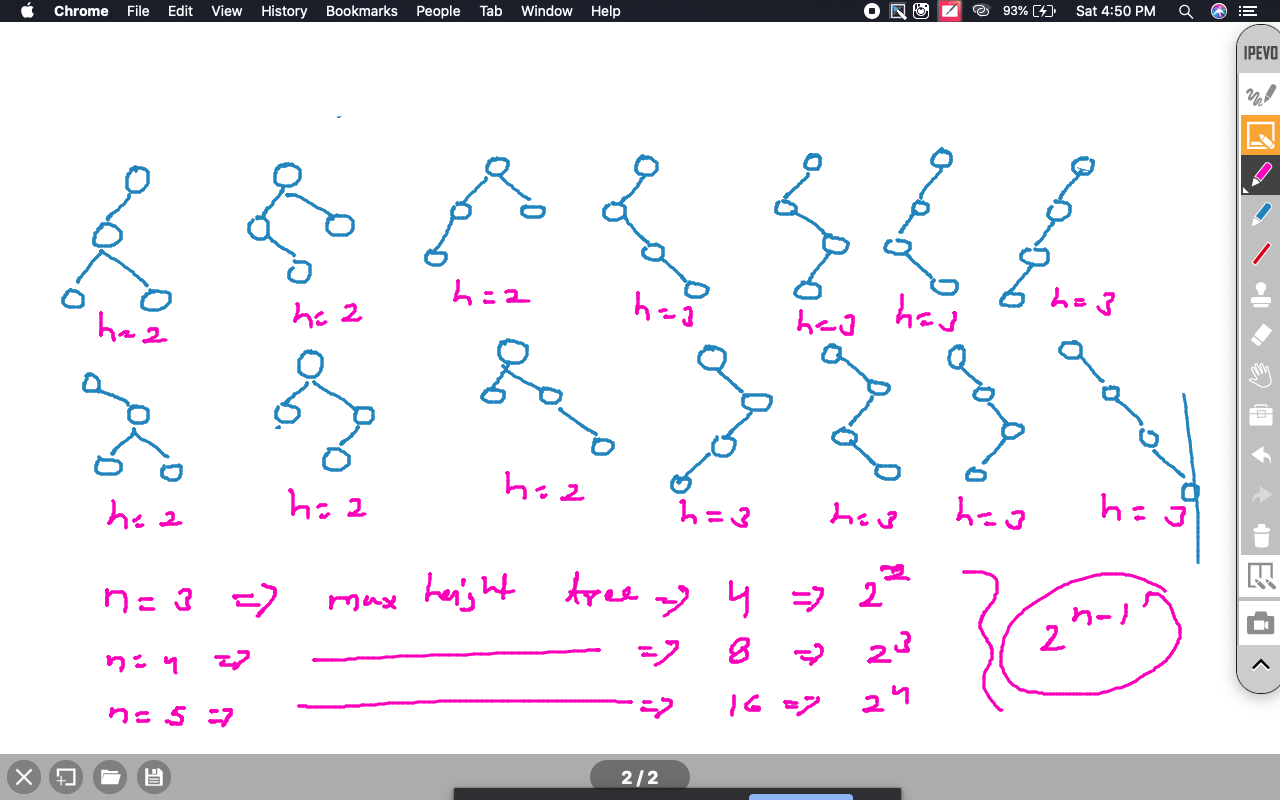 Chrome File Edit View History Bookmarks People Tab Window Help 93% Sat 4:50 PM
IPEVO
h=2 h=2 h=2 h=3 h=3 h=3 h=3
h=2 h=2 h=2 h=3 h=3 h=3 h=3
n=3 => max height tree => 4 => 2^2
n=4 => => 8 => 2^3
n=5 => => 16 => 2^4
2^n-1
2 / 2